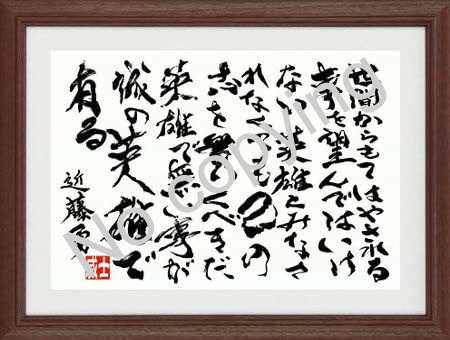 世間からもてはやされる
事を望んではいけ
ない英雄とみなさ
れなくっても己の
志を くべきだ
英雄で無い事が
誠の英雄で
有る
近藤勇
No copying